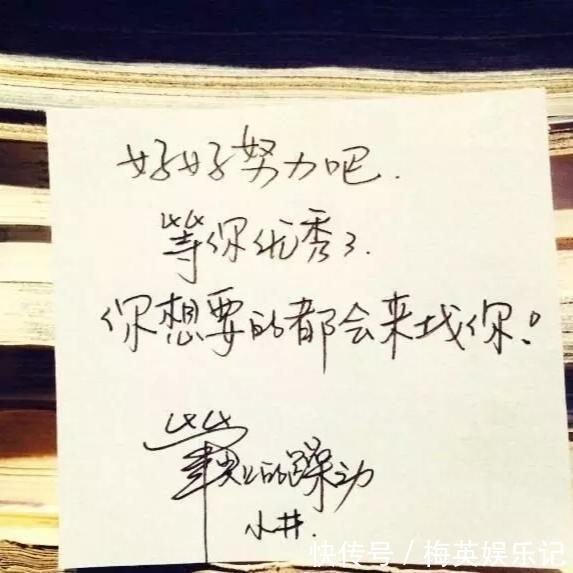 好好努力吧.
等你优秀了.
你想要的都会来找你!
的躁动
小井.
快传号 / 梅英娱乐记